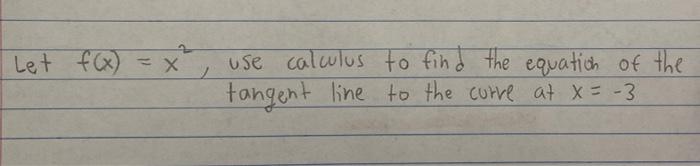 Let f(x) = x², use calculus to find the equation of the
tangent line to the curve at x = -3